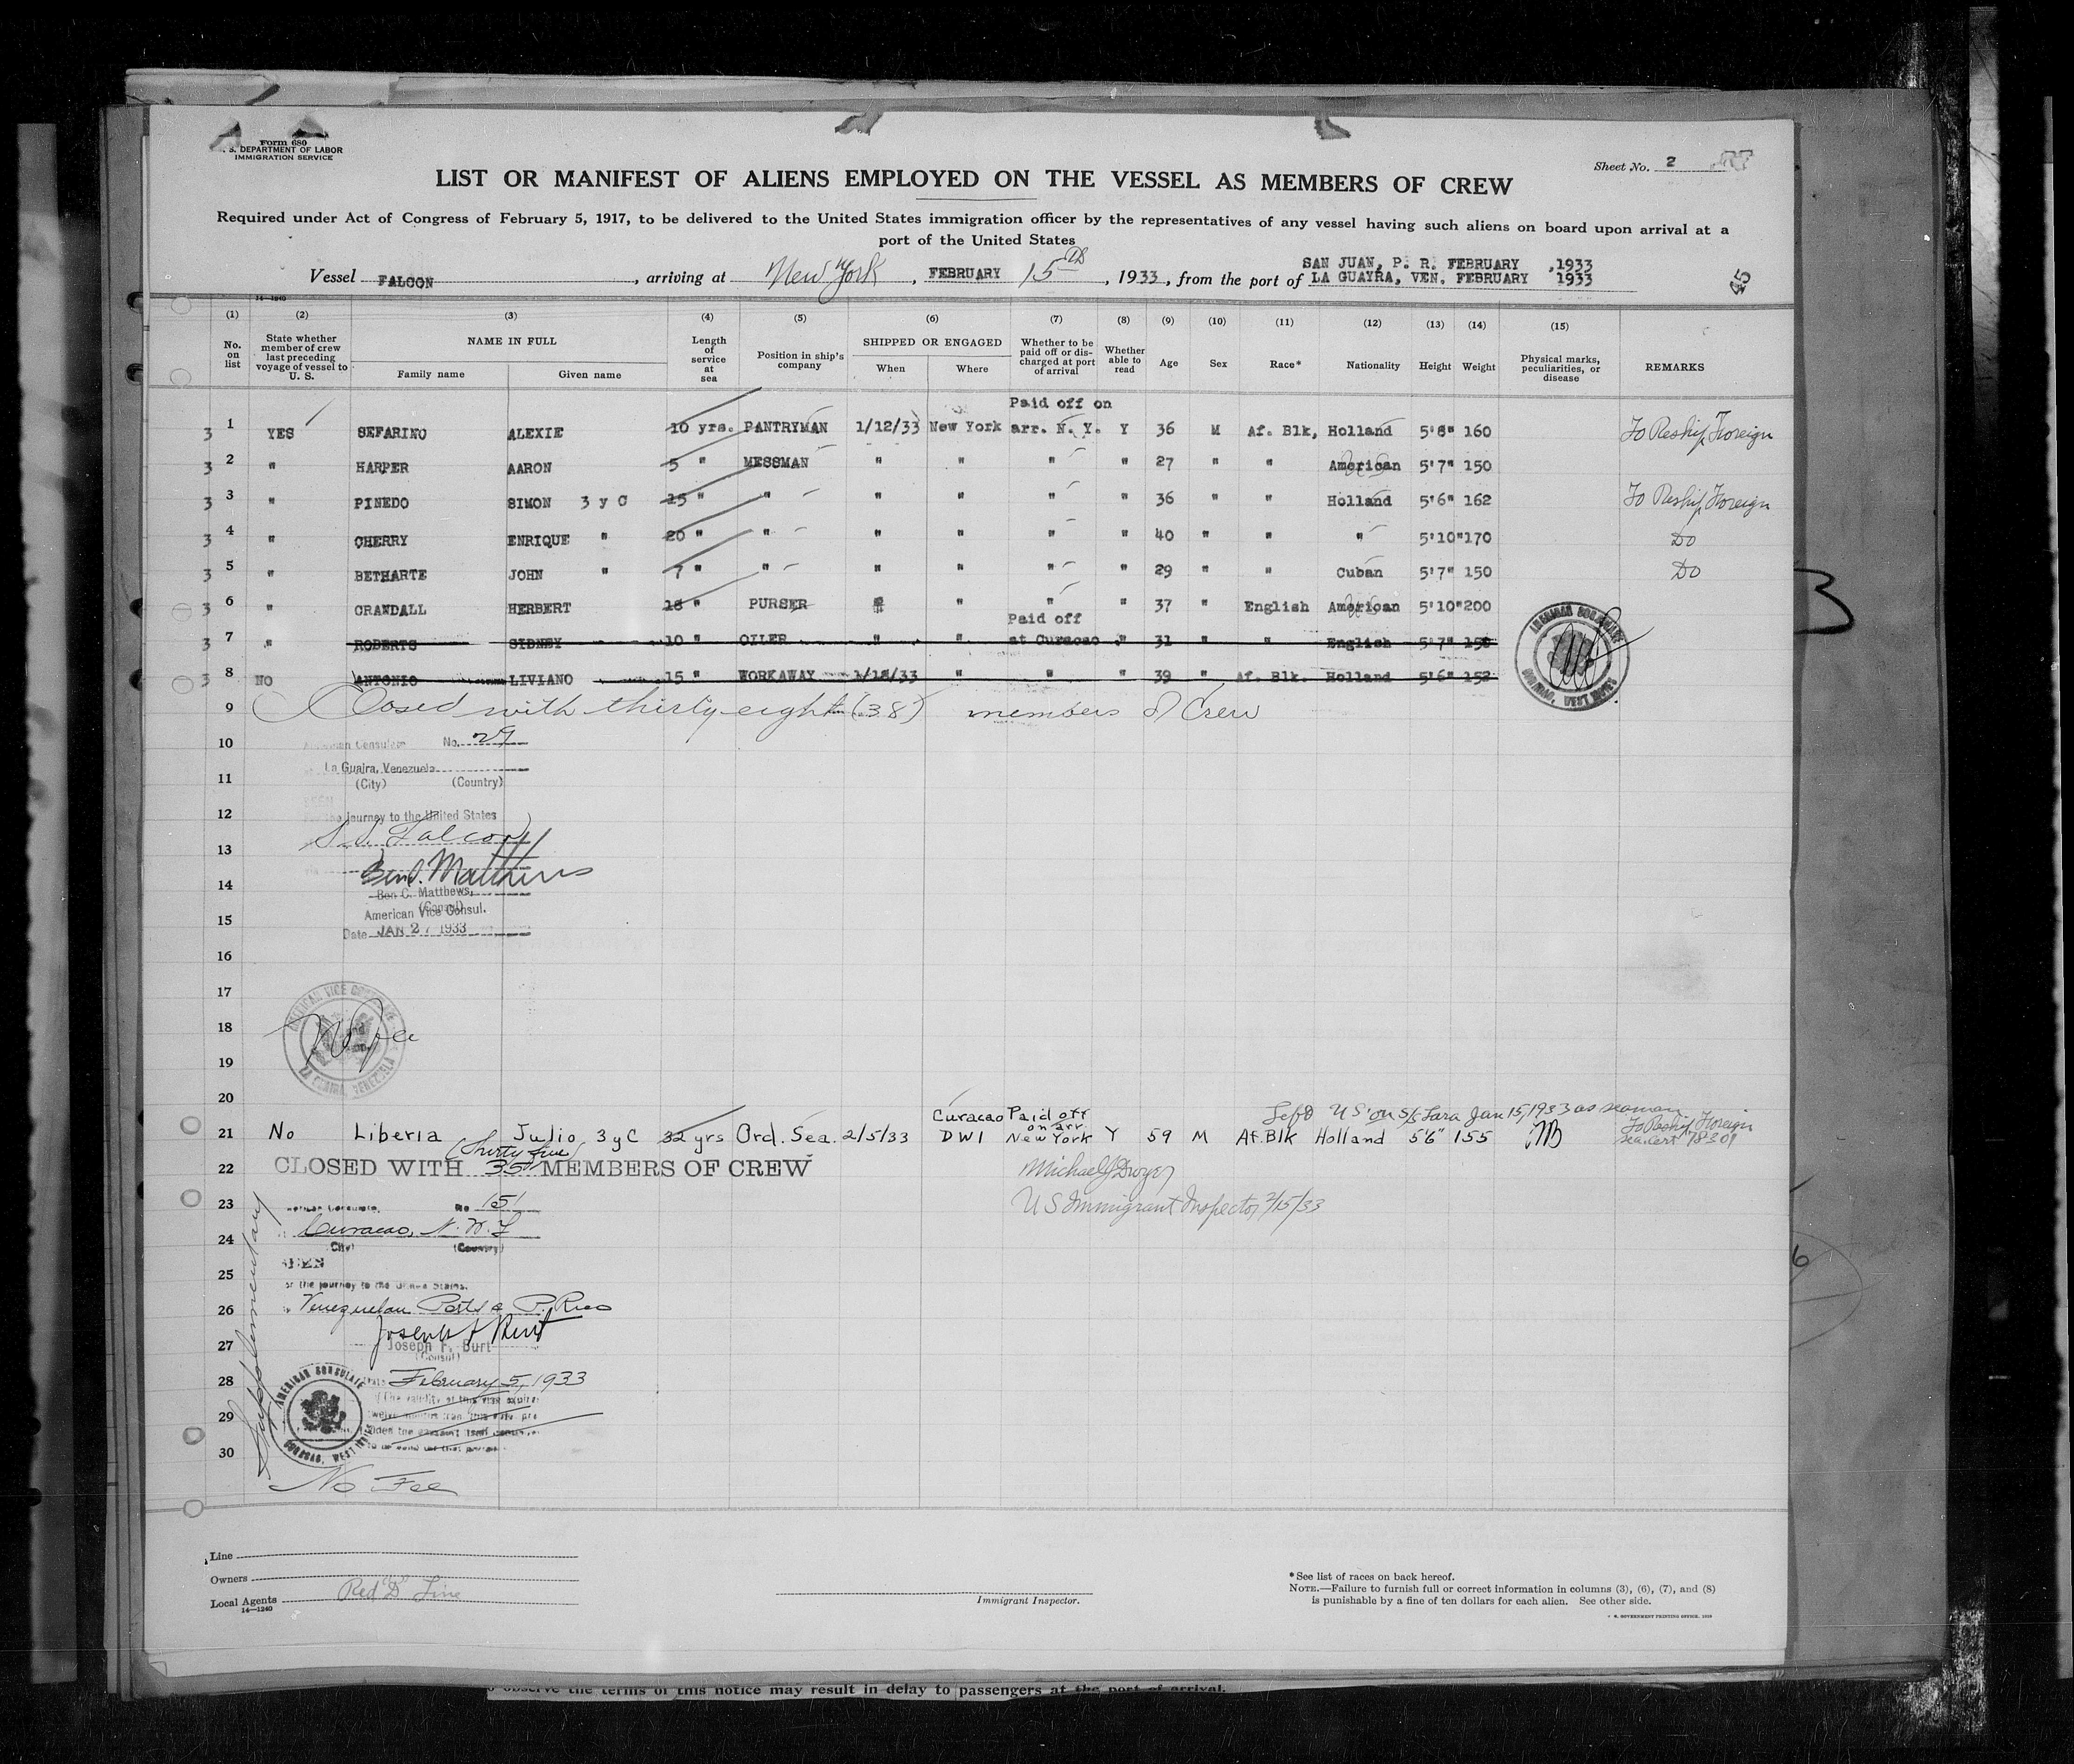 Form 680
U. S. DEPARTMENT OF LABOR
IMMIGRATION SERVICE
Sheet No. 2
LIST OR MANIFEST OF ALIENS EMPLOYED ON THE VESSEL AS MEMBERS OF CREW
Required under Act of Congress of February 5, 1917, to be delivered to the United States immigration officer by the representatives of any vessel having such aliens on board upon arrival at a
port of the United States
SAN JUAN, P. R. FEBRUARY ,1933
Vessel FALCON, arriving at New York, FEBRUARY 15, 1933, from the port of LA GUAYRA, VEN. FEBRUARY 1933
45
14—1240
(1) (2) (3) (4) (5) (6) (7) (8) (9) (10) (11) (12) (13) (14) (15)
No. on list
State whether member of crew last preceding voyage of vessel to U. S.
NAME IN FULL
Family name
Given name
Length of service at sea
Position in ship's company
SHIPPED OR ENGAGED
When
Where
Whether to be paid off or discharged at port of arrival
Whether able to read
Age
Sex
Race*
Nationality
Height
Weight
Physical marks, peculiarities, or disease
REMARKS
Paid off on
3 1 YES SEFARINO ALEXIE 10 yrs. PANTRYMAN 1/12/33 New York arr. N. Y. Y 36 M Af. Blk, Holland 5'8" 160 To Reship Foreign
3 2 " HARPER AARON 5 " MESSMAN " " " " 27 " " American 5'7" 150
3 3 " PINEDO SIMON 3 y C 15 " " " " " " 36 " " Holland 5'6" 162 To Reship Foreign
3 4 " CHERRY ENRIQUE " 20 " " " " " " 40 " " " 5'10" 170 Do
3 5 " BETHARTE JOHN " 7 " " " " " " 29 " " Cuban 5'7" 150 Do
3 6 " CRANDALL HERBERT 18 " PURSER " " " " 37 " English American 5'10" 200
Paid off
3 7 " ROBERTS SIDNEY 10 " OILER " " at Curacao " 31 " " English 5'7" 150
3 8 NO ANTONIO LIVIANO 15 " WORKAWAY 1/18/33 " " " 39 " Af. Blk. Holland 5'6" 152
AMERICAN CONSULATE
CURACAO, WEST INDIES
9 Closed with thirty eight (38) members of Crew
10 American Consulate No. 29
La Guaira, Venezuela
11 (City) (Country)
12 journey to the United States
S. S. Falcon
13
Ben C. Matthews
14 Ben C. Matthews,
(Consul)
American Vice Consul.
15 Date JAN 27 1933
16
17
AMERICAN VICE CONSULATE
18 No fee
19 LA GUAIRA, VENEZUELA
20
Curacao Paid off Left US on S/S Lara Jan 15, 1933 as seaman
on arr To Reship Foreign
21 No Liberia Julio 3 y C 32 yrs Ord. Sea. 2/5/33 DWI New York Y 59 M Af. Blk Holland 5'6" 155 sea. cert
(Thirty five)
22 CLOSED WITH 35 MEMBERS OF CREW Michael J Dwyer
23 No 151 US Immigrant Inspector 2/15/33
Curacao, N. W. I.
24 (City) (Country)
SEEN
25 or the journey to the United States.
26 Venezuelan Ports & P. Rico
Joseph F Burt
27 Joseph F. Burt
(Consul)
28 February 5, 1933
29
30
AMERICAN CONSULATE
CURACAO, WEST INDIES
Supplementary
No Fee
3
6
Line
Owners
Local Agents Red "D" Line
14—1240
Immigrant Inspector.
*See list of races on back hereof.
NOTE.—Failure to furnish full or correct information in columns (3), (6), (7), and (8)
is punishable by a fine of ten dollars for each alien. See other side.
observe the terms of this notice may result in delay to passengers at the port of arrival.